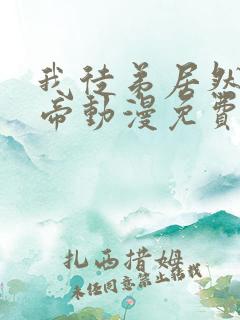 我徒弟居然
帝動漫免費
扎西措姆
未经同意禁止转载